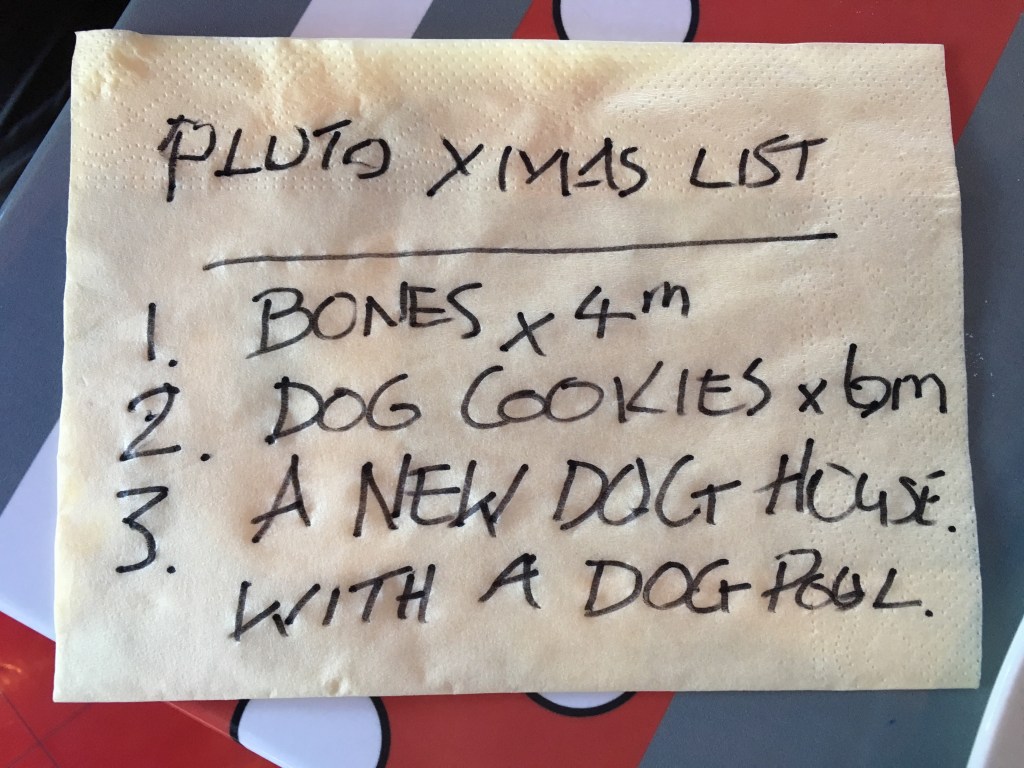 PLUTO XMAS LIST
1. BONES x 4m
2. DOG COOKIES x 6m
3. A NEW DOG HOUSE.
WITH A DOG POOL.